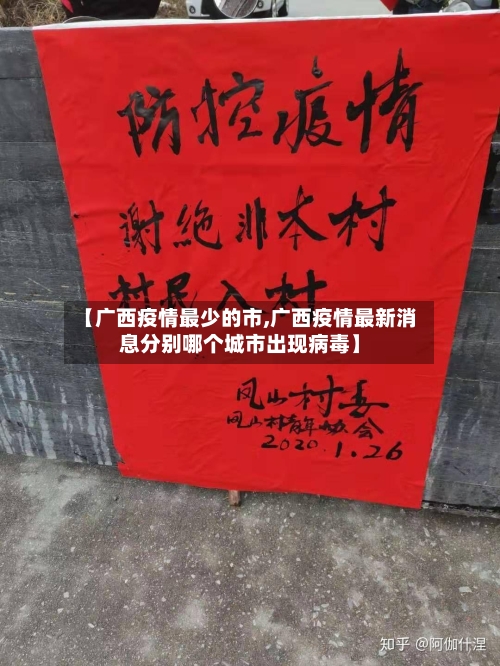 防控疫情
谢絶非本村
村民入村
【广西疫情最少的市,广西疫情最新消
息分别哪个城市出现病毒】
凤山村委
凤山村青年协会
2020.1.26
知乎 @阿伽什涅